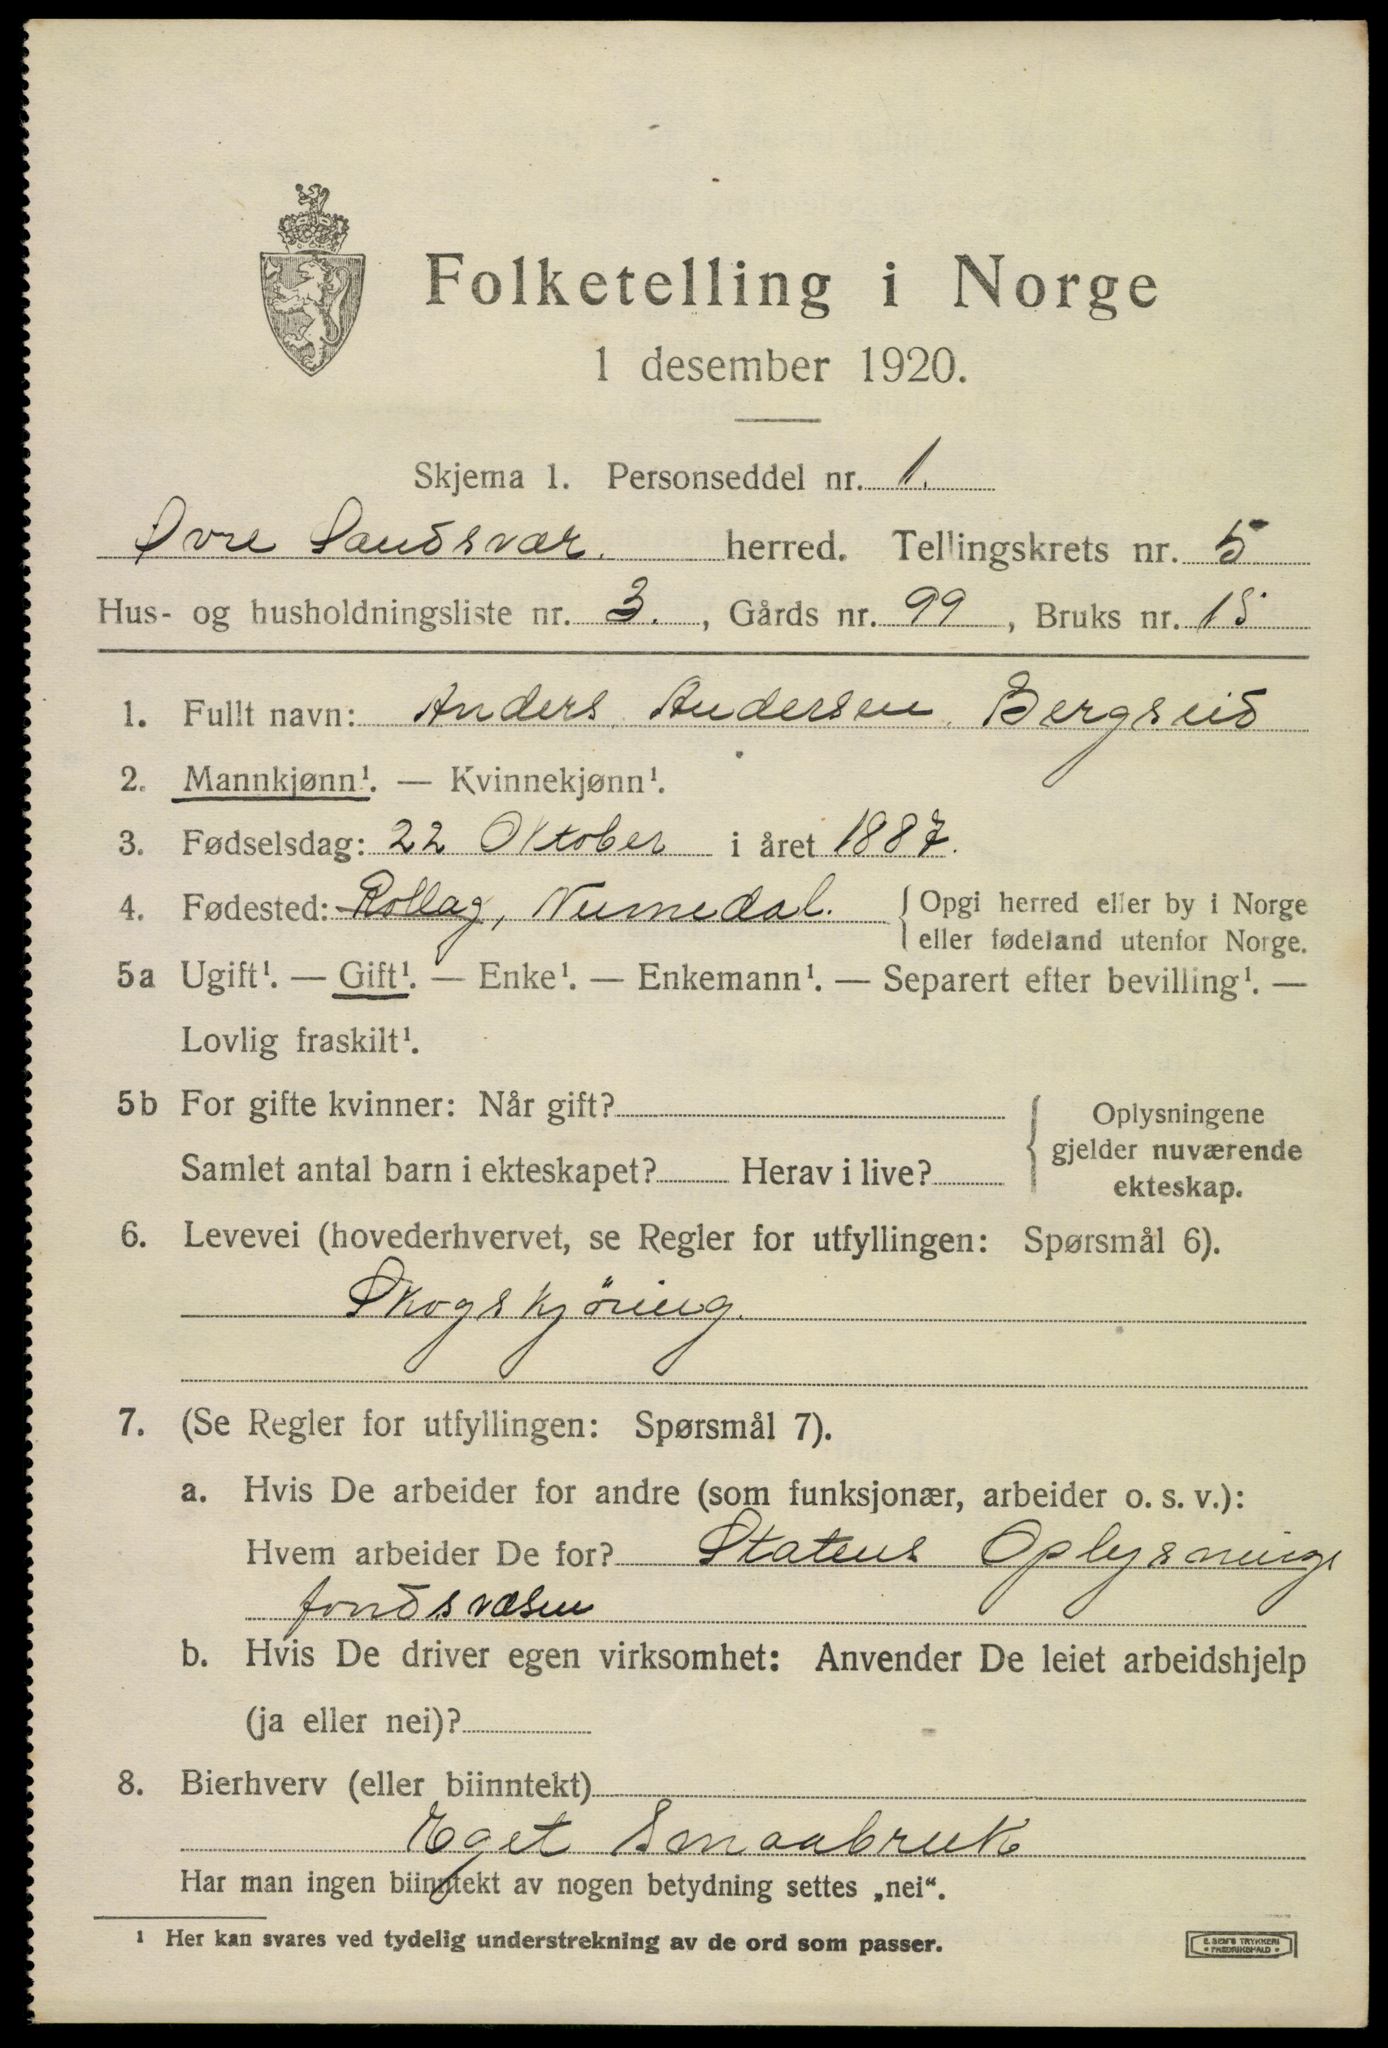 Folketelling i Norge
1 desember 1920.
Skjema 1. Personseddel nr. 1.
Øvre Sandsvær. herred. Tellingskrets nr. 5
Hus- og husholdningsliste nr. 3., Gårds nr. 99, Bruks nr. 15
1. Fullt navn: Anders Andersen Bergseid
2. Mannkjønn¹. — Kvinnekjønn¹.
3. Fødselsdag: 22 Oktober i året 1887.
4. Fødested: Rollag, Numedal. { Opgi herred eller by i Norge
eller fødeland utenfor Norge.
5a Ugift¹. — Gift¹. — Enke¹. — Enkemann¹. — Separert efter bevilling¹. —
Lovlig fraskilt¹.
5b For gifte kvinner: Når gift?
Samlet antal barn i ekteskapet? Herav i live?
{ Oplysningene
gjelder nuværende
ekteskap.
6. Levevei (hovederhvervet, se Regler for utfyllingen: Spørsmål 6).
Skogskjöring.
7. (Se Regler for utfyllingen: Spørsmål 7).
a. Hvis De arbeider for andre (som funksjonær, arbeider o. s. v.):
Hvem arbeider De for? Statens Oplysnings
fondsvæsen
b. Hvis De driver egen virksomhet: Anvender De leiet arbeidshjelp
(ja eller nei)?
8. Bierhverv (eller biinntekt)
Eget Smaabruk
Har man ingen biinntekt av nogen betydning settes „nei“.
¹ Her kan svares ved tydelig understrekning av de ord som passer.
E. SEM'S TRYKKERI
• FREDRIKSHALD •